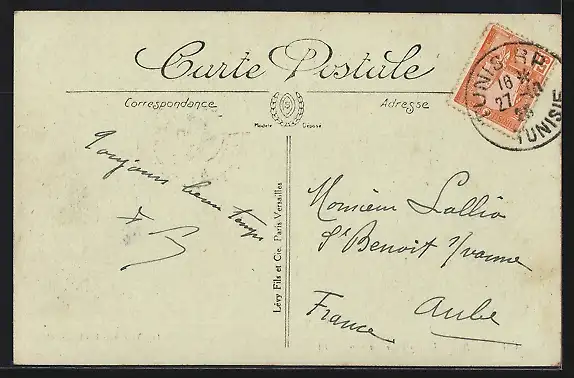 Carte Postale
Correspondance
Adresse
Modèle Déposé
TUNIS R.P.
18
27
TUNISIE
Toujours beau temps
Lévy Fils et Cie. Paris-Versailles
Monsieur Lallia
St Benoit s/vanne
Aube
France